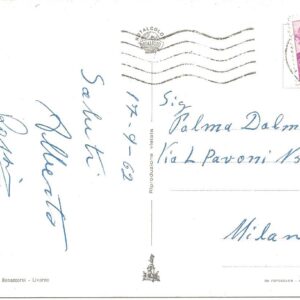 Saluti
Alberto
17-9-62
Sig
Palma Dalm
Via L Pavoni N
Milan
Riproduzione vietata
Bonaccorsi - Livorno